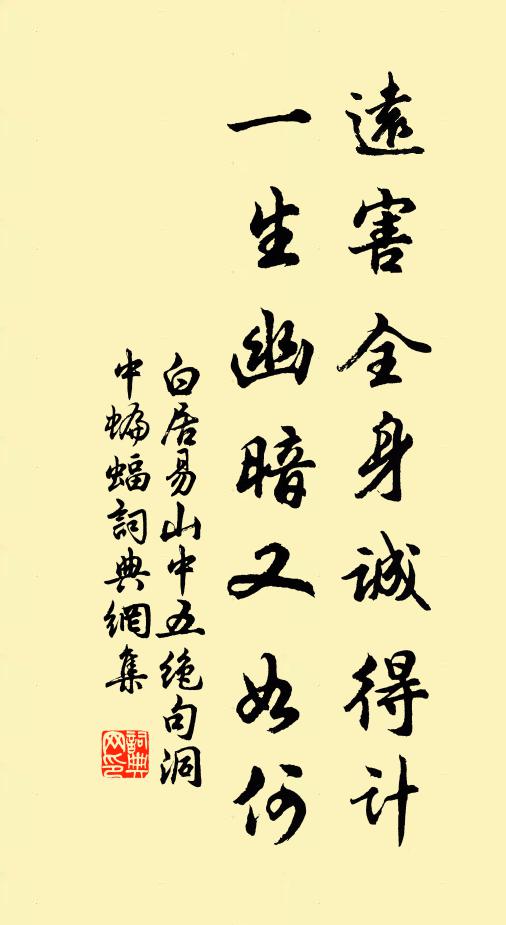 遠害全身誠得計
一生幽暗又如何
白居易山中五绝句洞
中蝙蝠詞典網集
詞典
网印